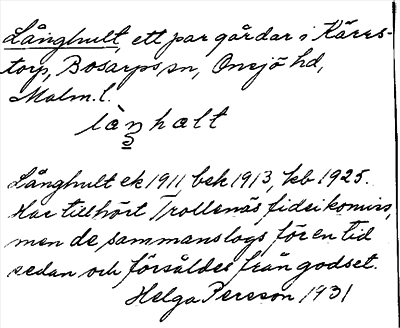 Långhult, ett par gårdar i Kärrs-
torp, Bosarps sn, Onsjö hd,
Malm.l.
làn̥halt
Långhult ek 1911 bek 1913, kb 1925.
Har tillhört Trollenäs fideikomiss,
men de sammanslogs för en tid
sedan och försåldes från godset.
Helga Persson 1931